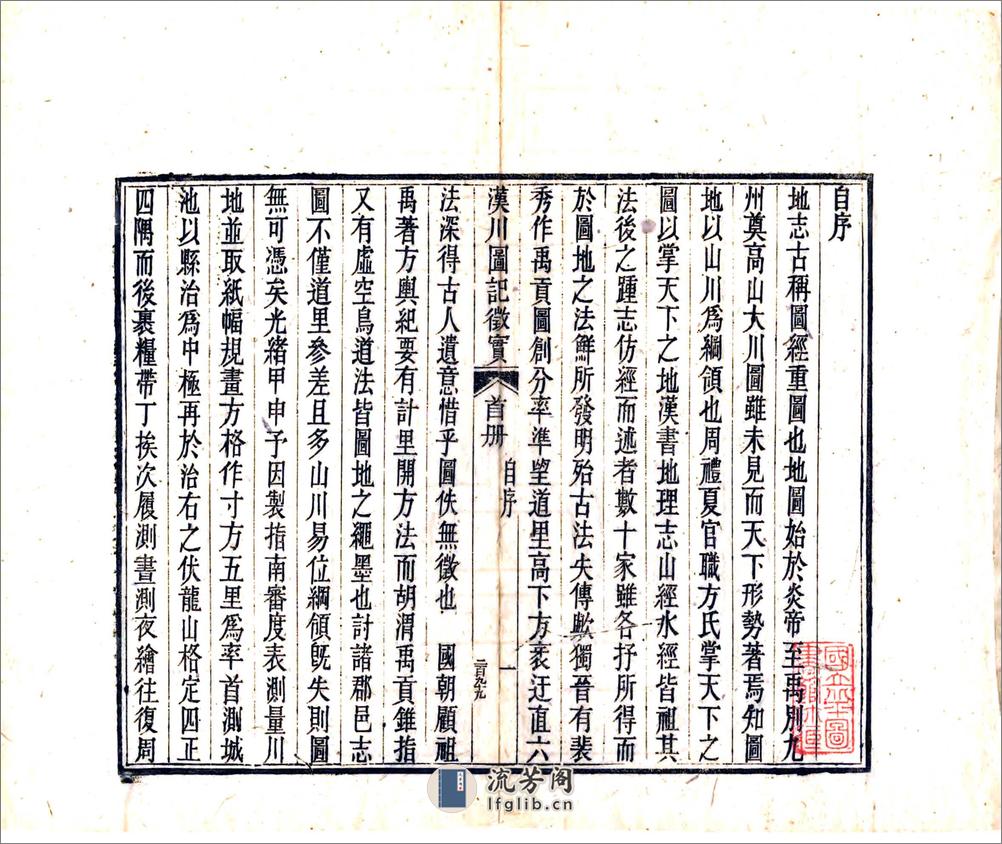 自序
地志古稱圖經重圖也地圖始於炎帝至禹別九
州奠高山大川圖雖未見而天下形勢著焉知圖
地以山川爲綱領也周禮夏官職方氏掌天下之
圖以掌天下之地漢書地理志山經水經皆祖其
法後之踵志仿經而述者數十家雖各抒所得而
於圖地之法鮮所發明殆古法失傳歟獨晉有裴
秀作禹貢圖創分率準望道里高下方衺迂直六
漢川圖記徵實 首册 自序 一 二百九九
法深得古人遺意惜乎圖佚無徵也 國朝顧祖
禹著方輿紀要有計里開方法而胡渭禹貢錐指
又有虛空鳥道法皆圖地之繩墨也討諸郡邑志
圖不僅道里參差且多山川易位綱領旣失則圖
無可憑矣光緒甲申予因製指南審度表測量川
地並取紙幅規畫方格作寸方五里爲率首測城
池以縣治爲中極再於治右之伏龍山格定四正
四隅而後裹糧帶丁挨次履測晝測夜繪往復周
國立北平圖書館收藏
流芳阁
lfglib.cn